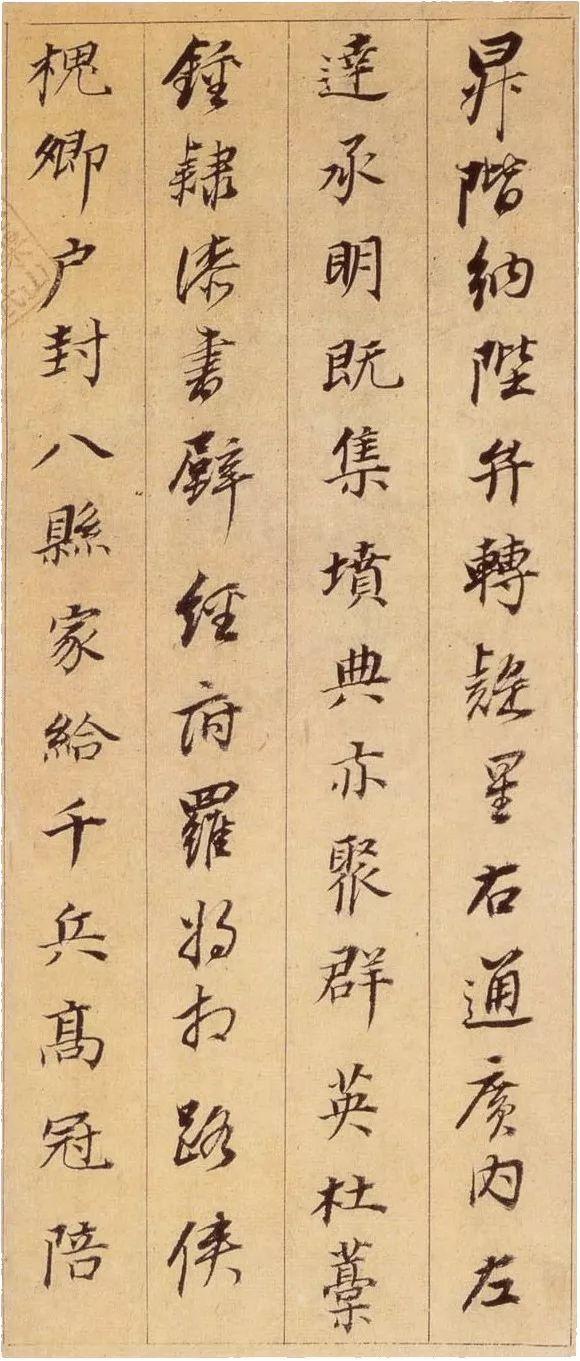 昇階納陛弁轉疑星右通廣內左
達承明既集墳典亦聚群英杜藁
鍾隸漆書壁經府羅將相路俠
槐卿户封八縣家給千兵高冠陪